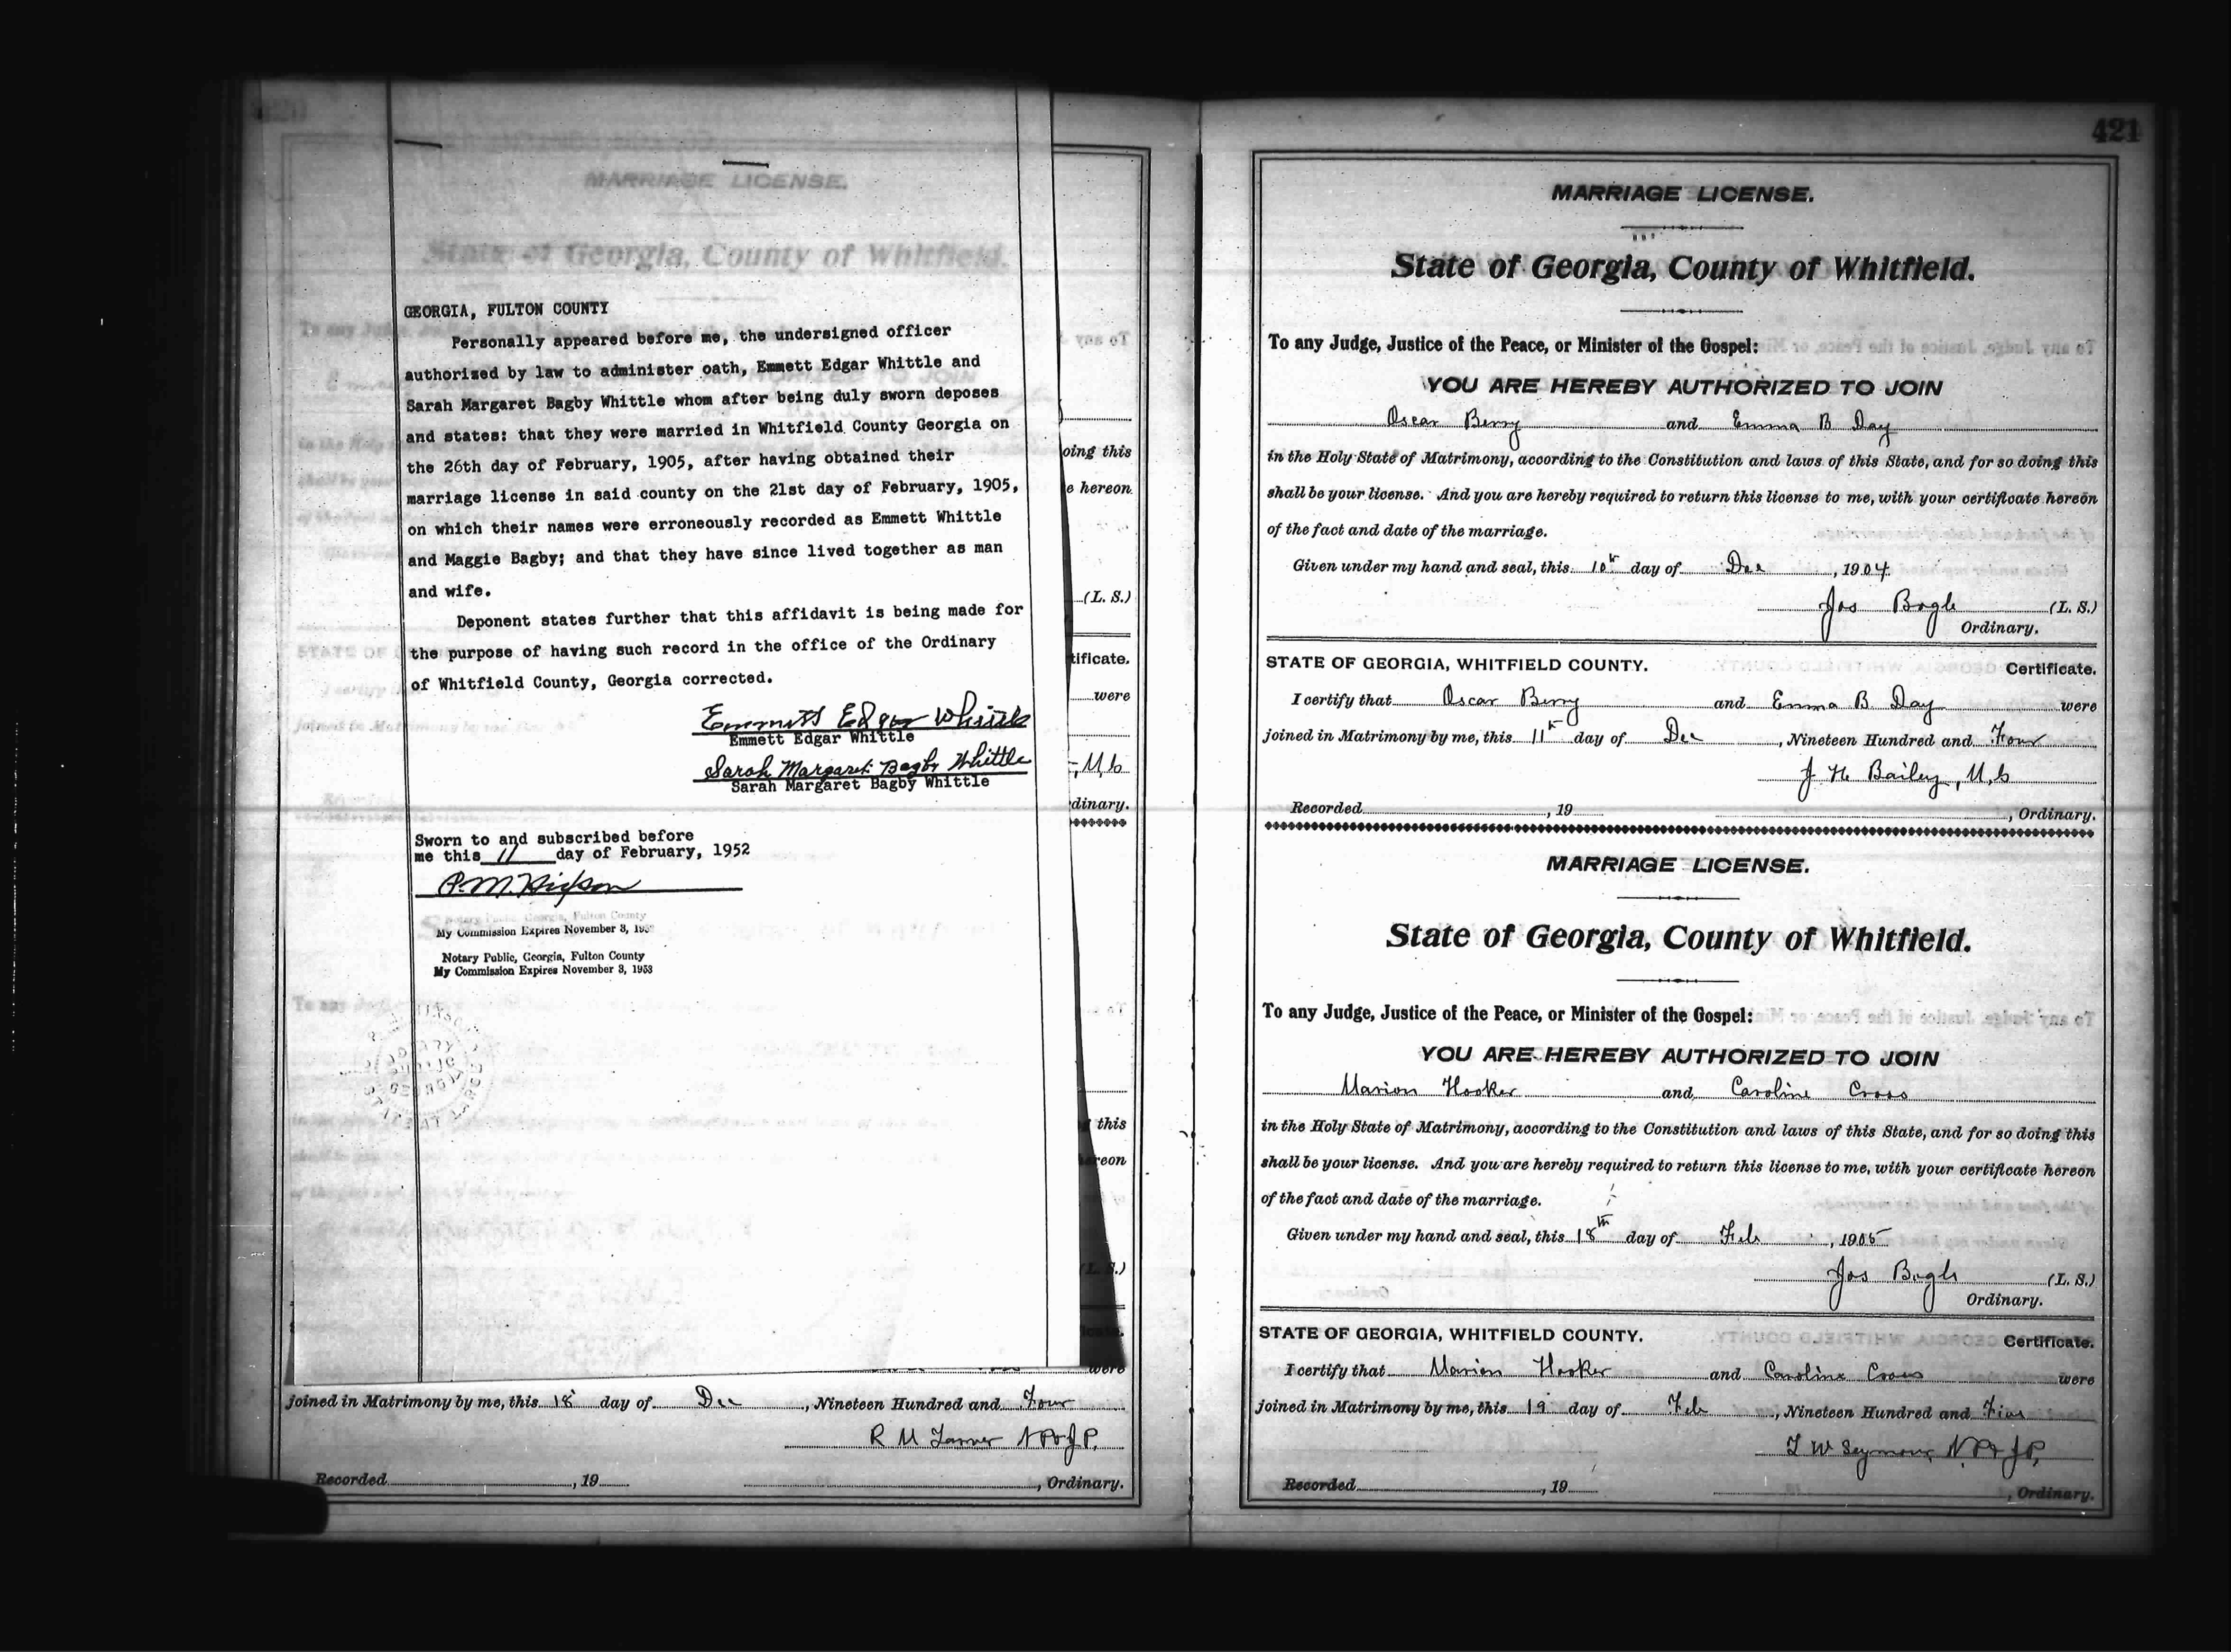 GEORGIA, FULTON COUNTY
Personally appeared before me, the undersigned officer
authorized by law to administer oath, Emmett Edgar Whittle and
Sarah Margaret Bagby Whittle whom after being duly sworn deposes
and states: that they were married in Whitfield County Georgia on
the 26th day of February, 1905, after having obtained their
marriage license in said county on the 21st day of February, 1905,
on which their names were erroneously recorded as Emmett Whittle
and Maggie Bagby; and that they have since lived together as man
and wife.
Deponent states further that this affidavit is being made for
the purpose of having such record in the office of the Ordinary
of Whitfield County, Georgia corrected.
Emmett Edgar Whittle
Emmett Edgar Whittle
Sarah Margaret Bagby Whittle
Sarah Margaret Bagby Whittle
Sworn to and subscribed before
me this 11 day of February, 1952
Notary Public, Georgia, Fulton County
My Commission Expires November 3, 195
Notary Public, Georgia, Fulton County
My Commission Expires November 3, 1953
MARRIAGE LICENSE.
State of Georgia, County of Whitfield.
oing this
e hereon
(L. S.)
tificate.
were
dinary.
this
reon
(L. S.)
were
joined in Matrimony by me, this 18 day of Dec , Nineteen Hundred and Four
R M N P & J P.
Recorded , 19 , Ordinary.
421
MARRIAGE LICENSE.
State of Georgia, County of Whitfield.
To any Judge, Justice of the Peace, or Minister of the Gospel:
YOU ARE HEREBY AUTHORIZED TO JOIN
Oscar Berry and Emma B Day
in the Holy State of Matrimony, according to the Constitution and laws of this State, and for so doing this
shall be your license. And you are hereby required to return this license to me, with your certificate hereon
of the fact and date of the marriage.
Given under my hand and seal, this 10th day of Dec , 1904
Jos Bogle (L. S.)
Ordinary.
STATE OF GEORGIA, WHITFIELD COUNTY. Certificate.
I certify that Oscar Berry and Emma B Day were
joined in Matrimony by me, this 11th day of Dec , Nineteen Hundred and Four
J H Bailey, M,G
Recorded , 19 , Ordinary.
MARRIAGE LICENSE.
State of Georgia, County of Whitfield.
To any Judge, Justice of the Peace, or Minister of the Gospel:
YOU ARE HEREBY AUTHORIZED TO JOIN
Marion Hooker and Caroline Cross
in the Holy State of Matrimony, according to the Constitution and laws of this State, and for so doing this
shall be your license. And you are hereby required to return this license to me, with your certificate hereon
of the fact and date of the marriage.
Given under my hand and seal, this 18th day of Feb , 1905
Jos Bogle (L. S.)
Ordinary.
STATE OF GEORGIA, WHITFIELD COUNTY. Certificate.
I certify that Marion Hooker and Caroline Cross were
joined in Matrimony by me, this 19 day of Feb , Nineteen Hundred and Five
T W Seymour N. P & J P,
Recorded , 19 , Ordinary.